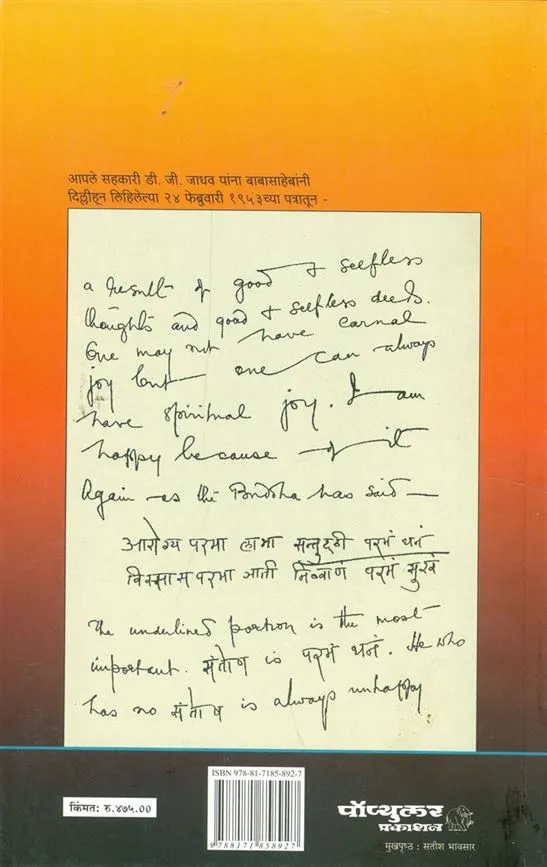 आपले सहकारी डी. जी. जाधव यांना बाबासाहेबांनी
दिल्लीहून लिहिलेल्या २४ फेब्रुवारी १९५३च्या पत्रातून -
a result of good & selfless
thoughts and good & selfless deeds.
One may not have carnal
joy but one can always
have spiritual joy. I am
happy because of it
Again as the Buddha has said —
आरोग्य परमा लाभा सन्तुट्ठी परमं धनं
विस्सास परमा ञाती निव्वाणं परमं सुखं
The underlined portion is the most
important. संतोष is परमं धनं. He who
has no संतोष is always unhappy.
किंमत: रु.४७५.००
ISBN 978-81-7185-892-7
9 788171 858927
पॉप्युलर
प्रकाशन
मुखपृष्ठ : सतीश भावसार